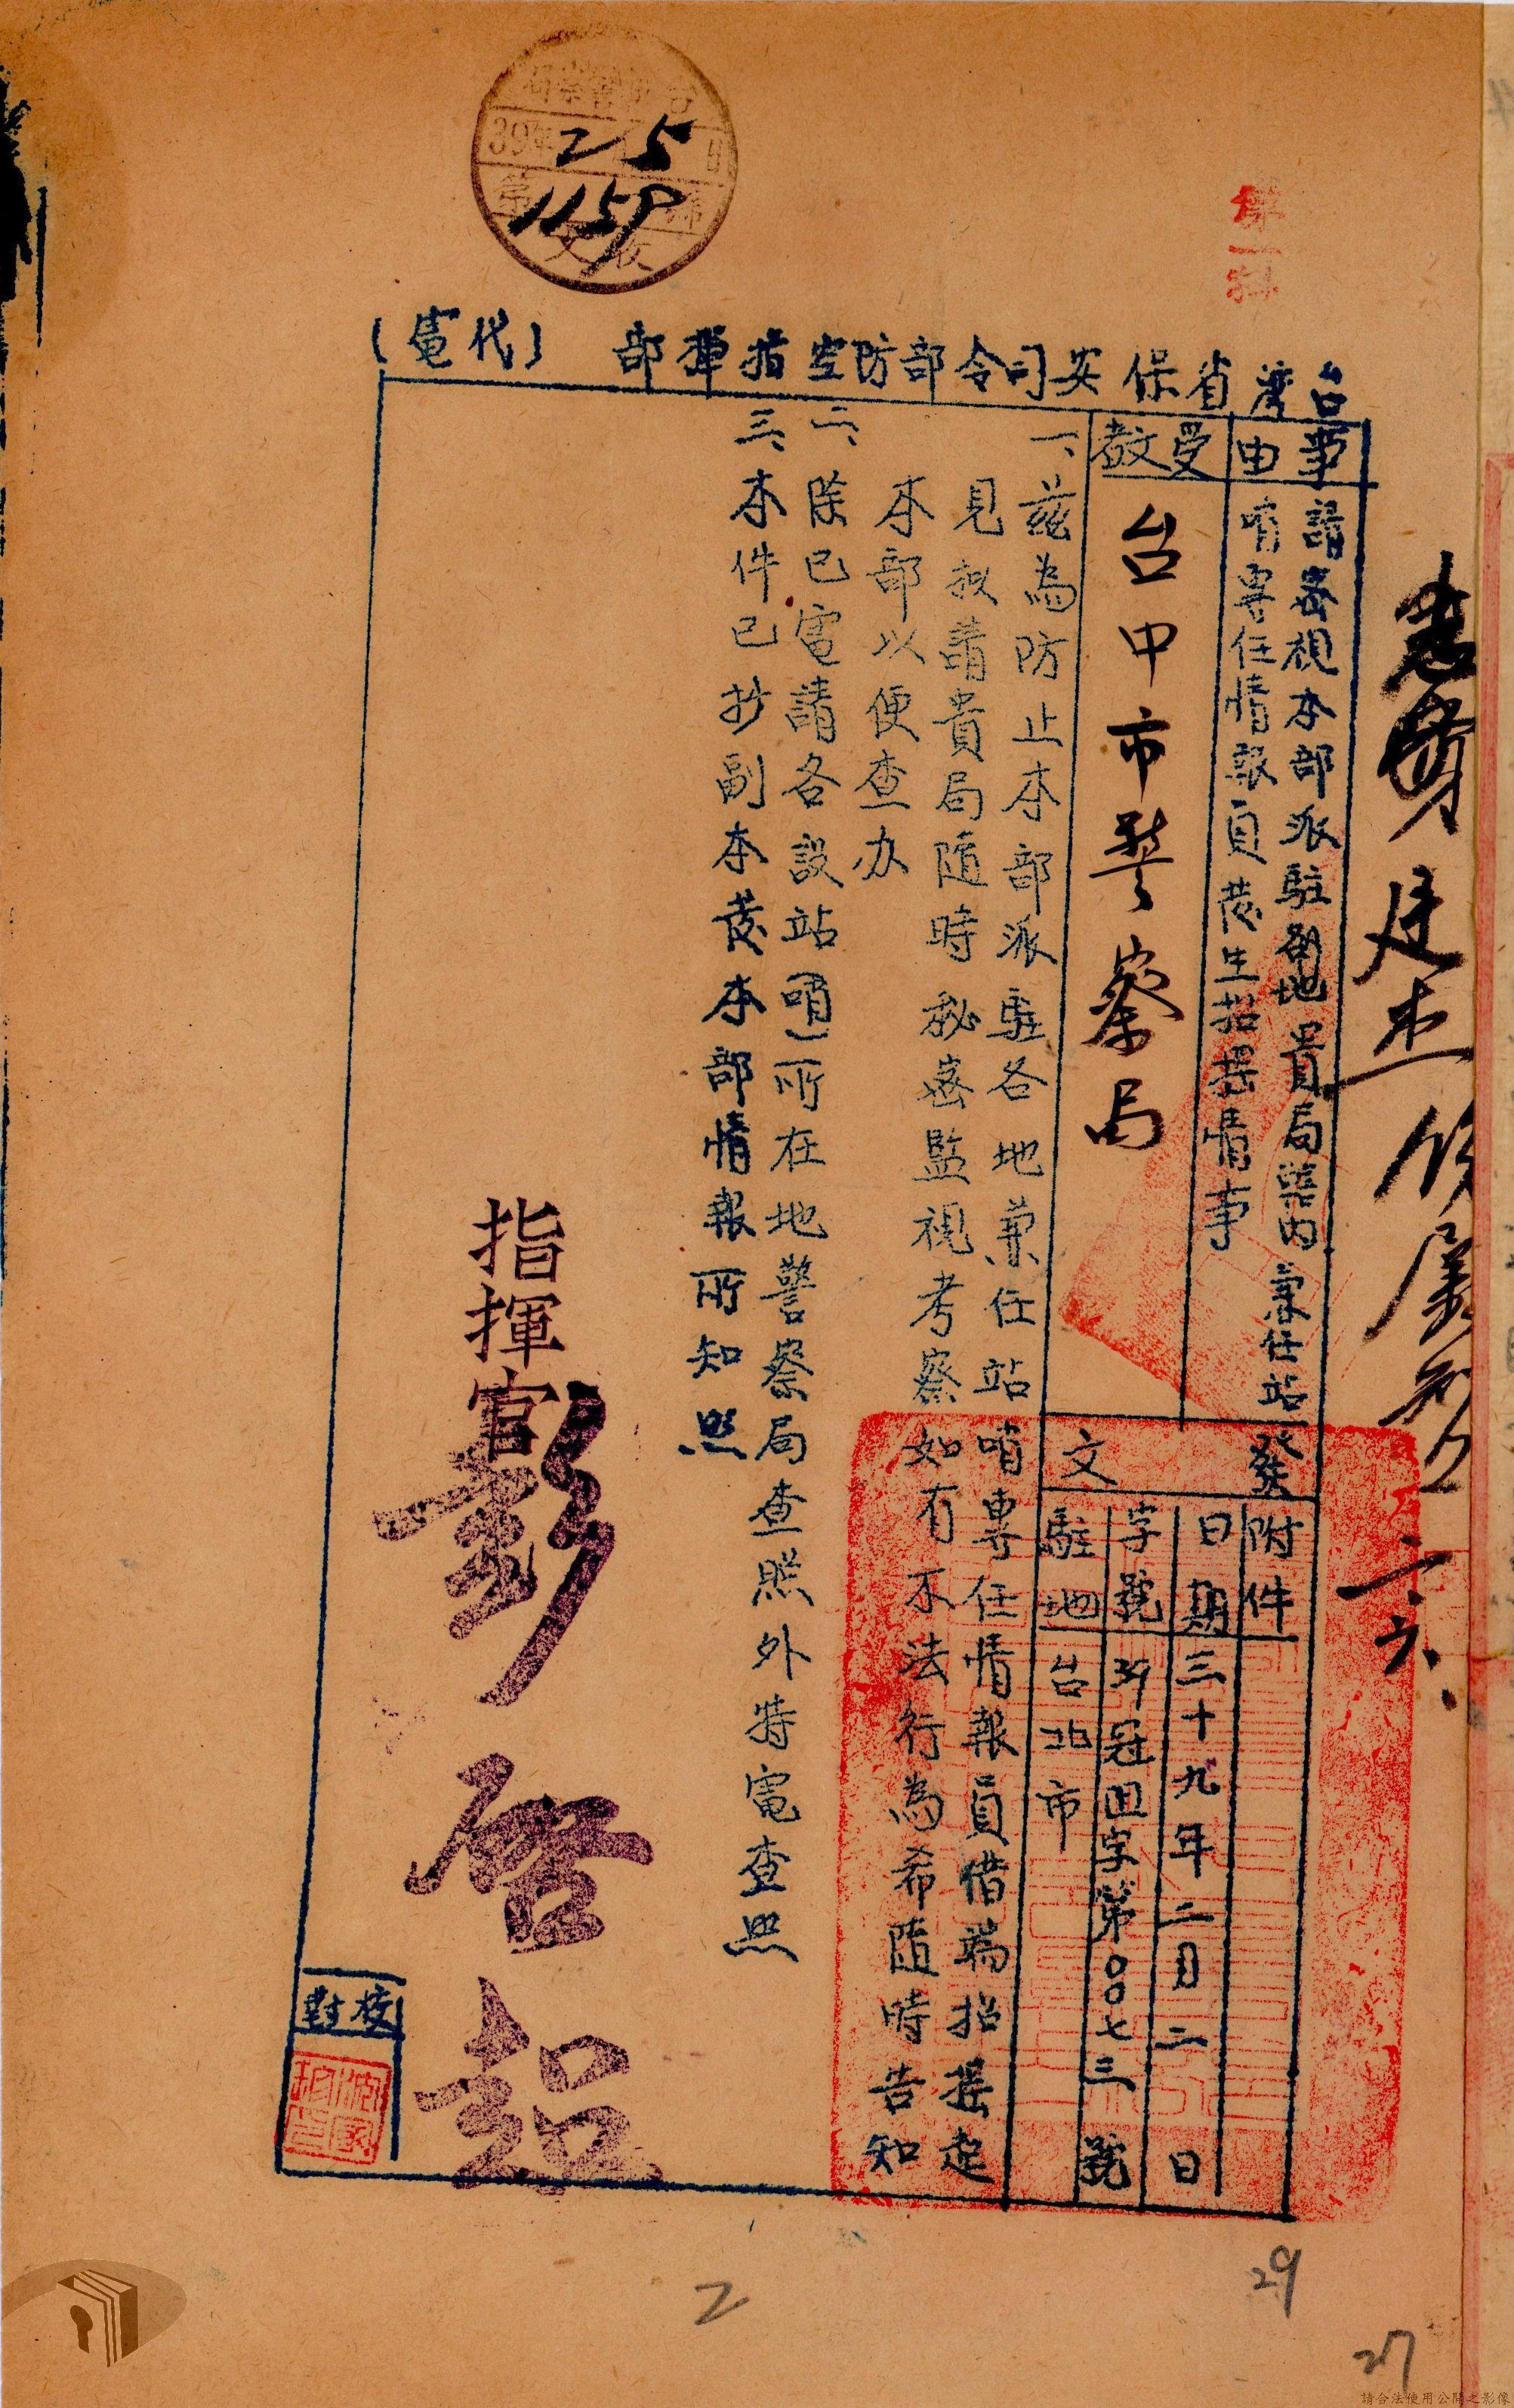 台灣省保安司令部防空指揮部
(代電)
事由
請密視本部派駐各地貴局築內兼任站
哨專任情報員發生招搖情事
受文者
台中市警察局
發文
附件
日期
三十九年二月二日
字號
冠田字第〇〇七三號
駐地
台北市
一、茲為防止本部派駐各地兼任站哨專任情報員借端招搖起
見擬請貴局隨時秘密監視考察如有不法行為希隨時告知
本部以便查办
二、除已電請各設站(哨)所在地警察局查照外特電查照
三、本件已抄副本發本部情報所知照
指揮官彭啓超
校對
第一科
39年
2 5
日
第
1159
號
收文
二、六、
29
27
2
請合法使用公開之影像